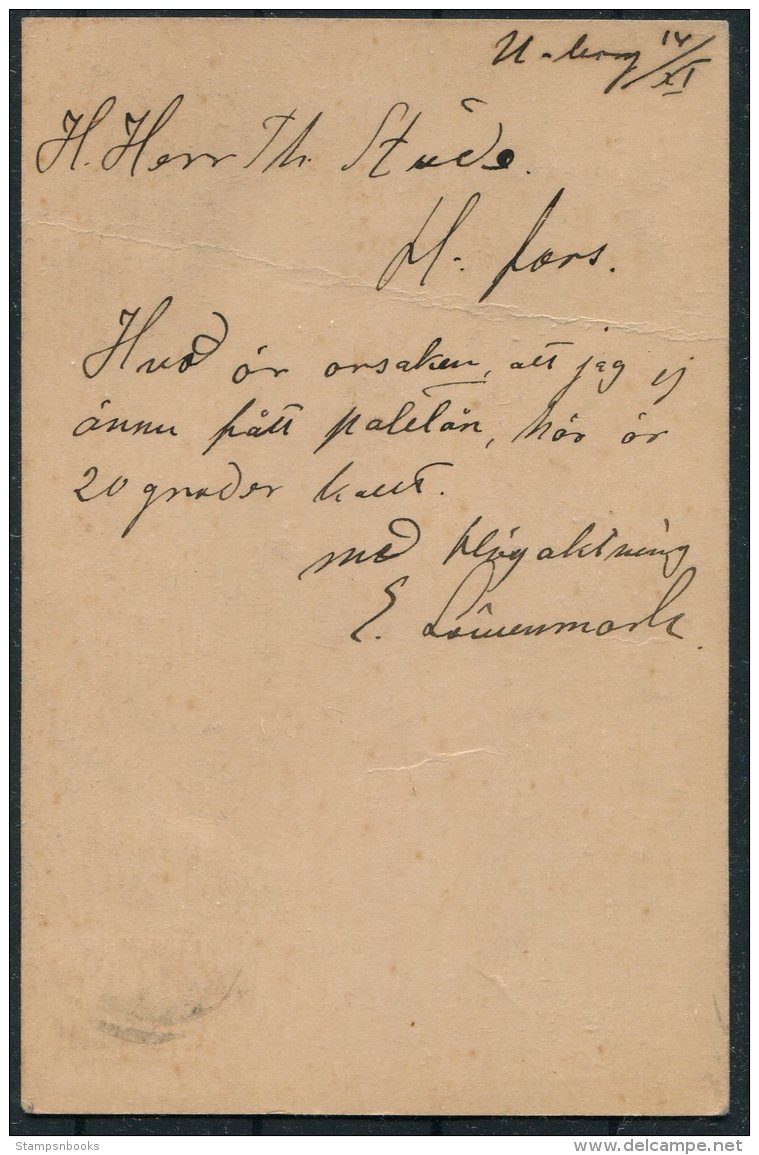 U-borg 14/XI
H. Herr Th. Stude.
H-fors.
Hvad är orsaken, att jag ej
ännu fått paletån, här är
20 grader kallt.
med Högaktning
E. Löwenmark.
Stampsnbooks
www.delcampe.net